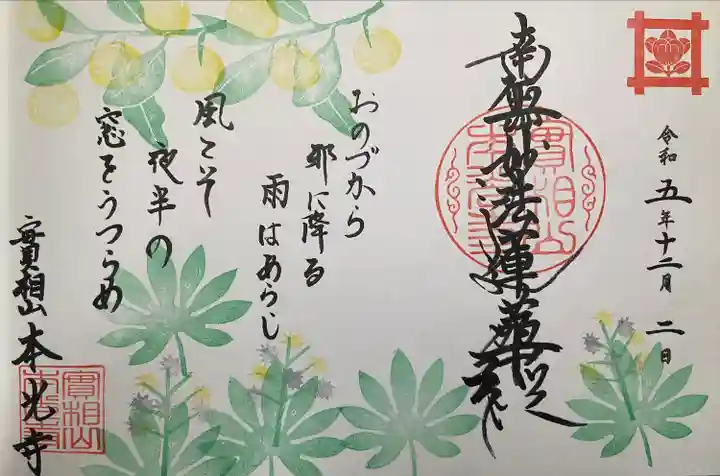 令和五年十二月二日
南無妙法蓮華経
實相山
おのづから
邪に降る
雨はあらじ
風こそ
夜半の
窓をうつらめ
實相山 本光寺
實相山
本光寺